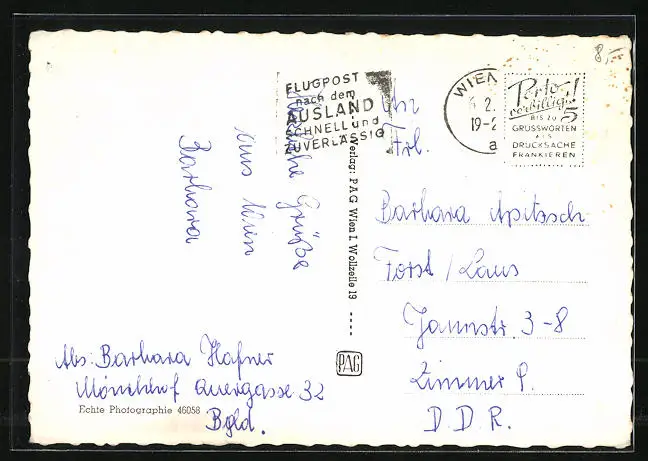 8,-
FLUGPOST
nach dem
AUSLAND
SCHNELL und
ZUVERLÄSSIG
WIEN
2.
19-2
a
Porto
vorbillig!
5
BIS ZU
GRUSSWORTEN
ALS
DRUCKSACHE
FRANKIEREN
Herzliche Grüße
aus Wien
Barbara
Verlag: PAG Wien I, Wollzeile 19
An
Frl.
Barbara Apitzsch
Forst / Laus
Jahnstr. 3-8
Zimmer 9.
D. D. R.
PAG
Abs: Barbara Hafner
Mönchhof Quergasse 32
Bgld.
Echte Photographie 46058